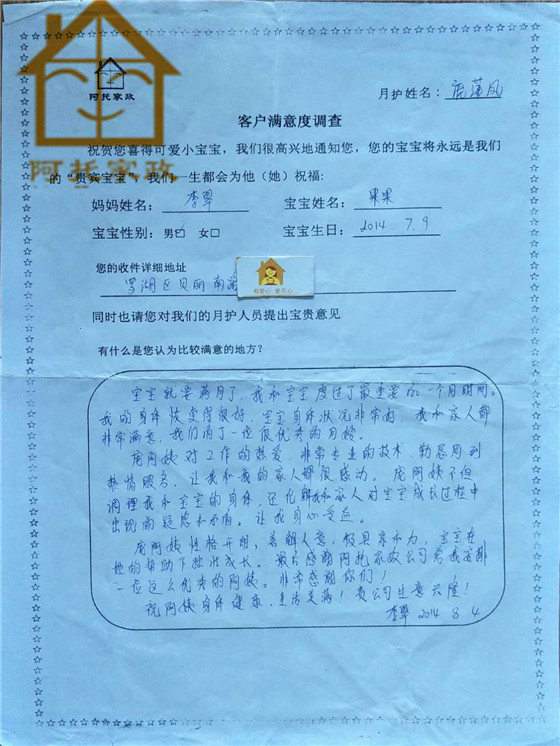 阿托家政
阿托家政
月护姓名：庞莲凤
客户满意度调查
祝贺您喜得可爱小宝宝，我们很高兴地通知您，您的宝宝将永远是我们
的“贵宾宝宝”，我们一生都会为他（她）祝福：
妈妈姓名：李翠 宝宝姓名：果果
宝宝性别：男☑ 女□ 宝宝生日：2014.7.9
您的收件详细地址
罗湖区贝丽南
有爱心 更尽心
同时也请您对我们的月护人员提出宝贵意见
有什么是您认为比较满意的地方？
宝宝就要满月了，我和宝宝度过了最重要的一个月时间。
我的身体恢复得很好，宝宝身体状况非常好，我和家人都
非常满意，我们请了一位很优秀的月嫂。
庞阿姨对工作的热爱，非常专业的技术，勤恳周到
热情服务，让我和我的家人都很感动。庞阿姨不但
调理我和宝宝的身体，还化解我和家人对宝宝成长过程中
出现的疑惑和矛盾。让我身心受益。
庞阿姨性格开朗，善解人意，极具亲和力，宝宝在
她的帮助下茁壮成长。最后感谢阿托家政公司给我安排
一位这么优秀的阿姨。非常感谢你们！
祝阿姨身体健康，生活美满！贵公司生意兴隆！
李翠 2014 8.4